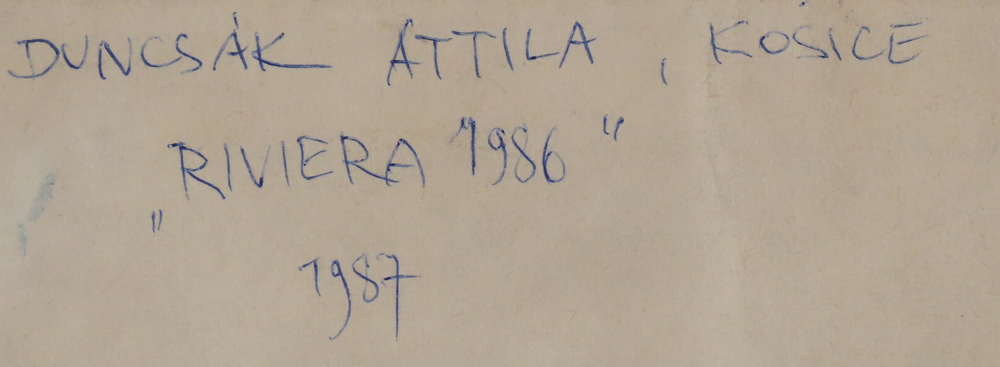 DUNCSÁK ATTILA, KOŠICE
„RIVIERA 1986"
1987